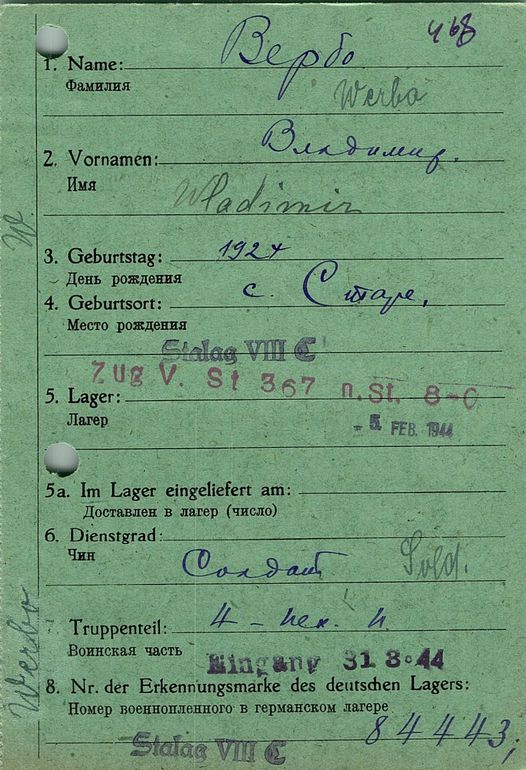 468
1. Name: Вербо
Фамилия
Werba
2. Vornamen: Владимир.
Имя
Wladimir
W.
3. Geburtstag: 1924
День рождения
4. Geburtsort: с. Старе,
Место рождения
Stalag VIII C
Zug V. St 367 n. St. 8-C
5. Lager:
Лагер
- 5. FEB. 1944
5a. Im Lager eingeliefert am:
Доставлен в лагер (число)
6. Dienstgrad:
Чин
Солдат Sold.
Truppenteil: 4 - пех. п.
Воинская часть
Eingang 31.3.44
Werbo
8. Nr. der Erkennungsmarke des deutschen Lagers:
Номер военнопленного в германском лагере
84443;
Stalag VIII C